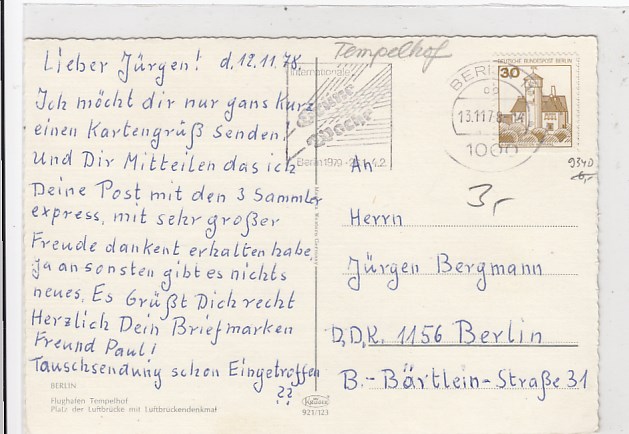 Lieber Jürgen! d. 12.11.78.
Ich möcht dir nur gans kurz
einen Kartengrüß Senden!
Und Dir Mitteilen das ich
Deine Post mit den 3 Sammler
express, mit sehr großer
Freude dankent erhalten habe,
ja ansonsten gibt es nichts
neues. Es Grüßt Dich recht
Herzlich Dein Briefmarken
Freund Paul!
Tauschsendung schon Eingetroffen
??
BERLIN
Flughafen Tempelhof
Platz der Luftbrücke mit Luftbrückendenkmal
Tempelhof
Internationale
Grüne
Woche
Berlin 1979
BERLIN
13.11.78
1000
DEUTSCHE BUNDESPOST BERLIN
30
9340
3,-
An
Herrn
Jürgen Bergmann
D,D,R, 1156 Berlin
B.-Bärtlein-Straße 31
Krüger
921/123